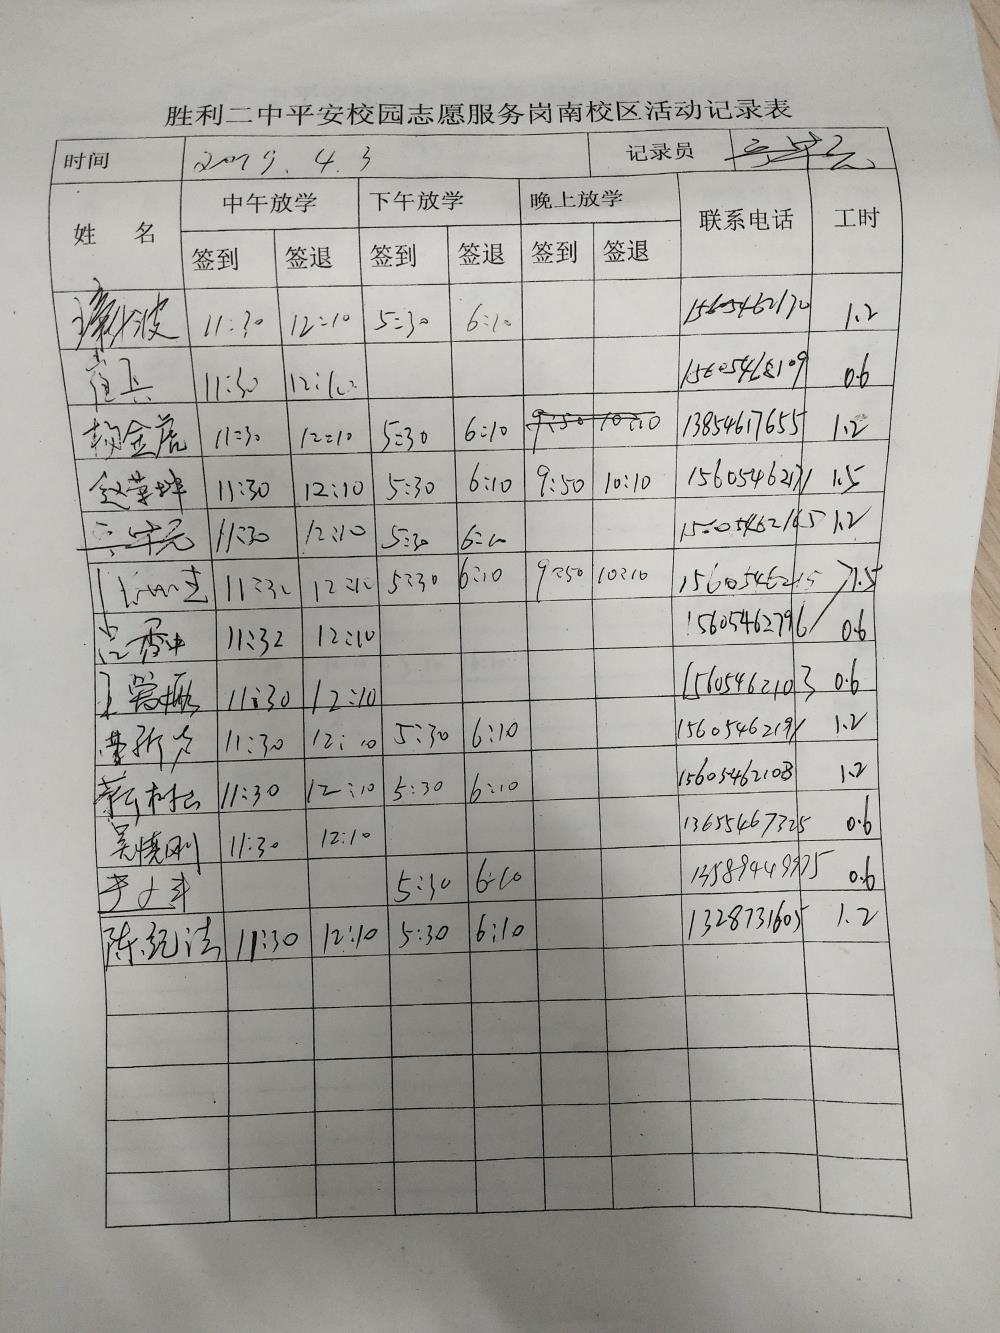 胜利二中平安校园志愿服务岗南校区活动记录表
时间 2019.4.3 记录员
姓 名 中午放学 下午放学 晚上放学 联系电话 工时
签到 签退 签到 签退 签到 签退
波 11:30 12:10 5:30 6:10 15605462170 1.2
崔兵 11:30 12:10 0.6
杨金虎 11:30 12:10 5:30 6:10 9:50 10:10 13854617655 1.2
赵荣 11:30 12:10 5:30 6:10 9:50 10:10 15605462171 1.5
11:30 12:10 5:30 6:10 15605462165 1.2
11:30 12:10 5:30 6:10 9:50 10:10 1560546215 1.5
11:32 12:10 15605462796 0.6
王 振 11:30 12:10 15605462103 0.6
11:30 12:10 5:30 6:10 15605462191 1.2
11:30 12:10 5:30 6:10 15605462108 1.2
吴晓刚 11:30 12:10 13655467325 0.6
5:30 6:10 0.6
陈纪法 11:30 12:10 5:30 6:10 1328731605 1.2